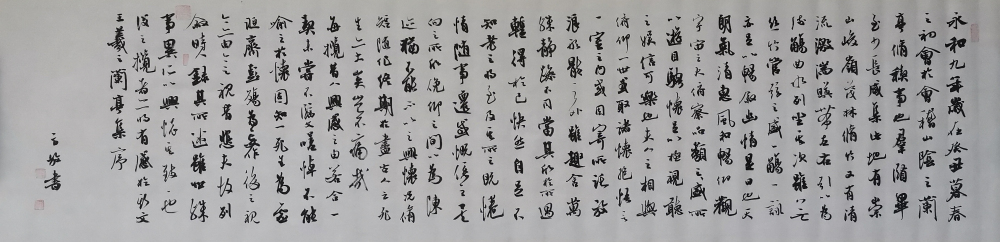 永和九年歲在癸丑暮春
之初會於會稽山陰之蘭
亭脩禊事也群賢畢
至少長咸集此地有崇
山峻嶺茂林脩竹又有清
流激湍映帶左右引以為
流觴曲水列坐其次雖無
絲竹管弦之盛一觴一詠
亦足以暢敘幽情是日也天
朗氣清惠風和暢仰觀
宇宙之大俯察品類之盛所
以遊目騁懷足以極視聽
之娛信可樂也夫人之相與
俯仰一世或取諸懷抱悟言
一室之內或因寄所託放
浪形骸之外雖趣舍萬
殊靜躁不同當其欣於所遇
暫得於己快然自足不
知老之將至及其所之既惓
情隨事遷感慨係之矣
向之所欣俛仰之間以為陳
迹猶不能不以之興懷況脩
短隨化終期於盡古人云死
生亦大矣豈不痛哉
每攬昔人興感之由若合一
契未嘗不臨文嗟悼不能
喻之於懷固知一死生為虛
誕齊彭殤為妄作後之視
今亦由今之視昔悲夫故列
敘時人錄其所述雖世殊
事異所以興懷其致一也
後之攬者亦將有感於斯文
王羲之蘭亭集序
書